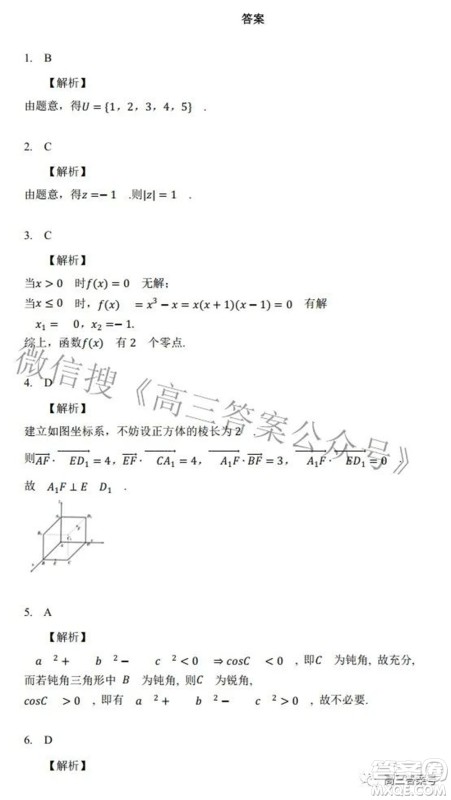 答案
1. B
【解析】
由题意，得U = {1，2，3，4，5} .
2. C
【解析】
由题意，得z =− 1 .则|z| = 1 .
3. C
【解析】
当x > 0 时f(x) = 0 无解；
当x ≤ 0 时，f(x) = x³ − x = x(x + 1)(x − 1) = 0 有解
x₁ = 0，x₂ =− 1.
综上，函数f(x) 有 2 个零点.
4. D
【解析】
建立如图坐标系，不妨设正方体的棱长为 2
则AF · ED₁ = 4，EF · CA₁ = 4， A₁F · BF = 3， A₁F · ED₁ = 0
故 A₁F ⊥ E D₁ .
5. A
【解析】
a ²+ b ²− c ²< 0 ⇒ cosC < 0 ，即C 为钝角，故充分，
而若钝角三角形中 B 为钝角，则C 为锐角，
cosC > 0 ，即有 a ²+ b ²− c ²> 0 ，故不必要.
6. D
【解析】
微信搜《高三答案公众号》
高三答案号